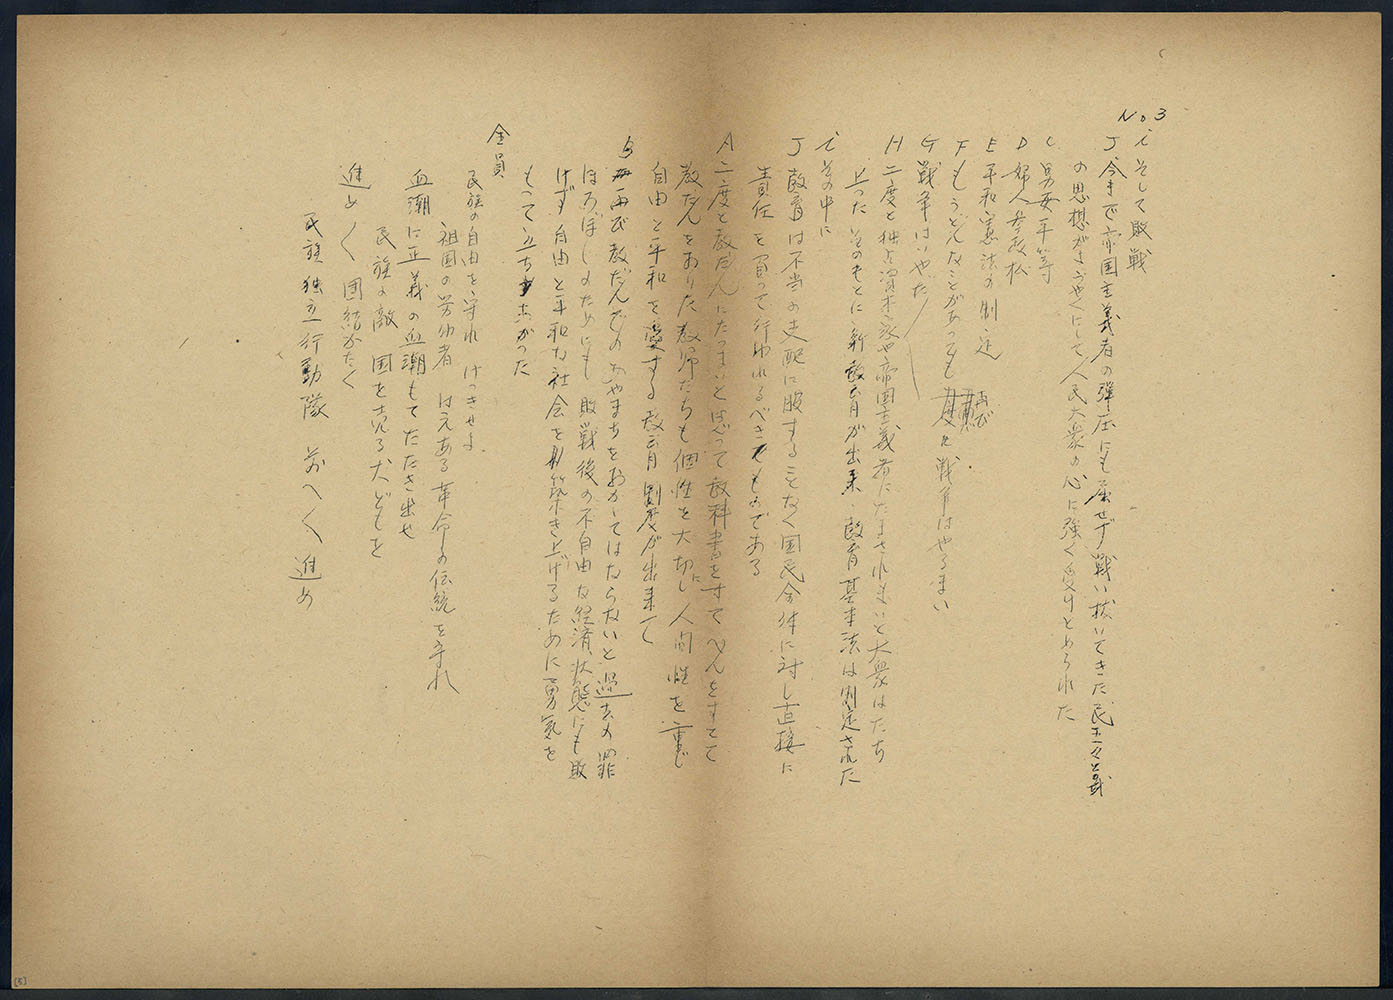 No 3
i そして敗戦
J 今まで帝国主義者の弾圧にも屈せず戦い抜いてきた民主々義
の思想がきゃくにして人民大衆の心に強く受けとめられた
C 男女平等
D 婦人参政权
E 平和憲法の制定
F もうどんなことがあっても 再び 戦争はやるまい
G 戦争はいやだ
H 二度と独占資本家や帝国主義者にだまされまいと大衆はたち
上った そのもとに新教育が出来 教育基本法は制定された
i その中に
J 教育は不当の支配に服することなく国民全体に対し直接に
責任を負って行われるべきものである
A 二度と教だんにたつまいと思って教科書をすてペんをすてて
教だんをおりた教師たちも個性を大切にし人間性を重じ
自由と平和を愛する教育制度が出来て
B 再び教だんでのあやまちをおかしてはならないと過去の罪
ほろぼしのためにも敗戦後の不自由な経済状態にも敗
けず自由と平和な社会を築き上げるために勇気を
もって立ち上がった
全員
民族の自由を守れ けっきせよ
祖国の労仂者 はえある革命の伝統を守れ
血潮に正義の血潮もてたたき出せ
民族の敵 国を売る犬どもを
進め〱団結かたく
民族独立行動隊 前へ〱進め
[5]